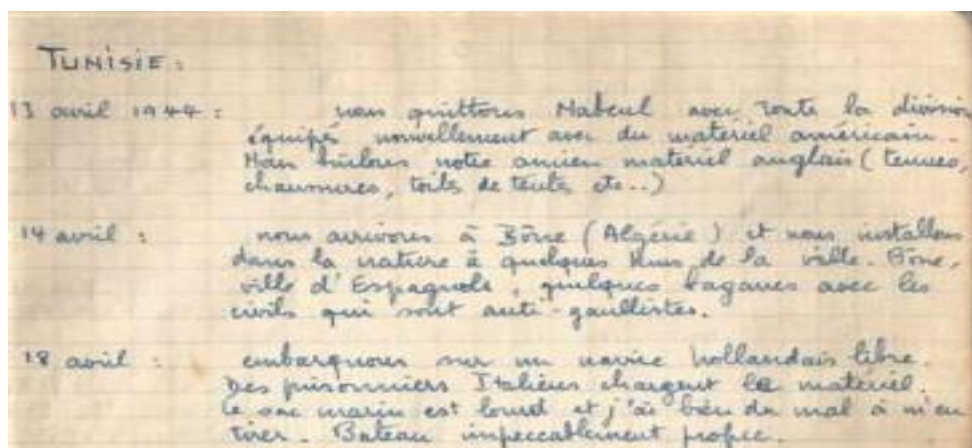 TUNISIE :
13 avril 1944 : nous quittons Nabeul avec toute la division
équipés nouvellement avec du matériel américain.
Nous brûlons notre ancien matériel anglais (tenues,
chaussures, toiles de tente, etc..)
14 avril : nous arrivons à Bône (Algérie) et nous installons
dans la nature à quelques kms de la ville. Bône,
ville d'Espagnols, quelques bagarres avec les
civils qui sont anti-gaullistes.
18 avril : embarquons sur un navire hollandais libre.
Des prisonniers Italiens chargent le matériel.
Le sac marin est lourd et j'ai bien du mal à m'en
tirer. Bateau impeccablement propre.